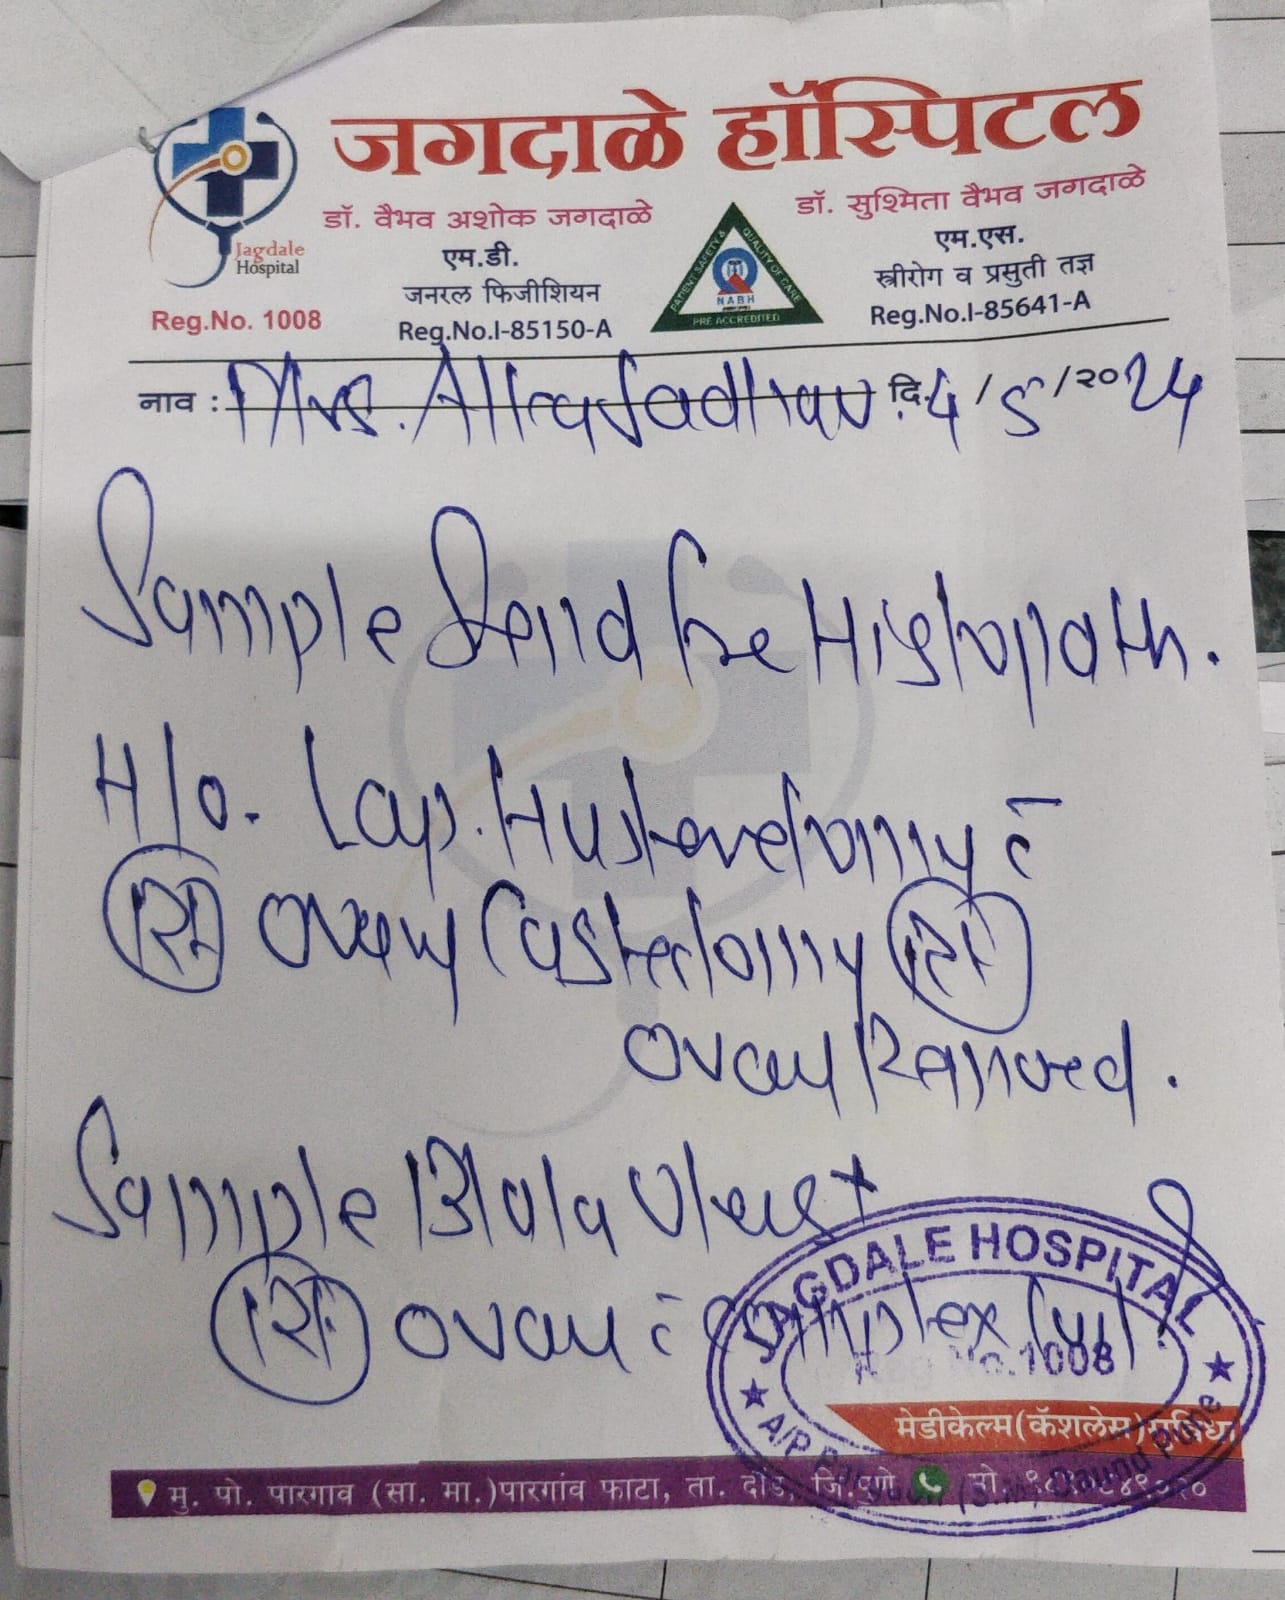 जगदाळे हॉस्पिटल
Jagdale
Hospital
Reg.No. 1008
डॉ. वैभव अशोक जगदाळे
एम.डी.
जनरल फिजीशियन
Reg.No.I-85150-A
PATIENT SAFETY & QUALITY OF CARE
NABH
PRE ACCREDITED
डॉ. सुश्मिता वैभव जगदाळे
एम.एस.
स्त्रीरोग व प्रसुती तज्ञ
Reg.No.I-85641-A
नाव : Mrs. Alka Jadhav दि. 4/5/२०24
Sample Send for Histopath.
H/o. Lap. Hysterectomy c̄
Ovary Cystectomy
Ovary Removed.
Sample
Ovary c̄ complex cyst.
JAGDALE HOSPITAL
Reg No.1008
मेडीकेल्म(कॅशलेस)सुविधा
मु. पो. पारगांव (सा. मा.)पारगांव फाटा, ता. दौंड, जि.पुणे